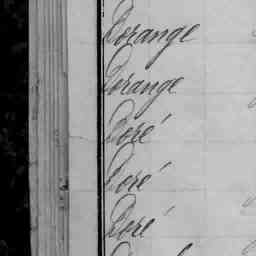 Dorange
Dorange
Doré
Doré
Doré